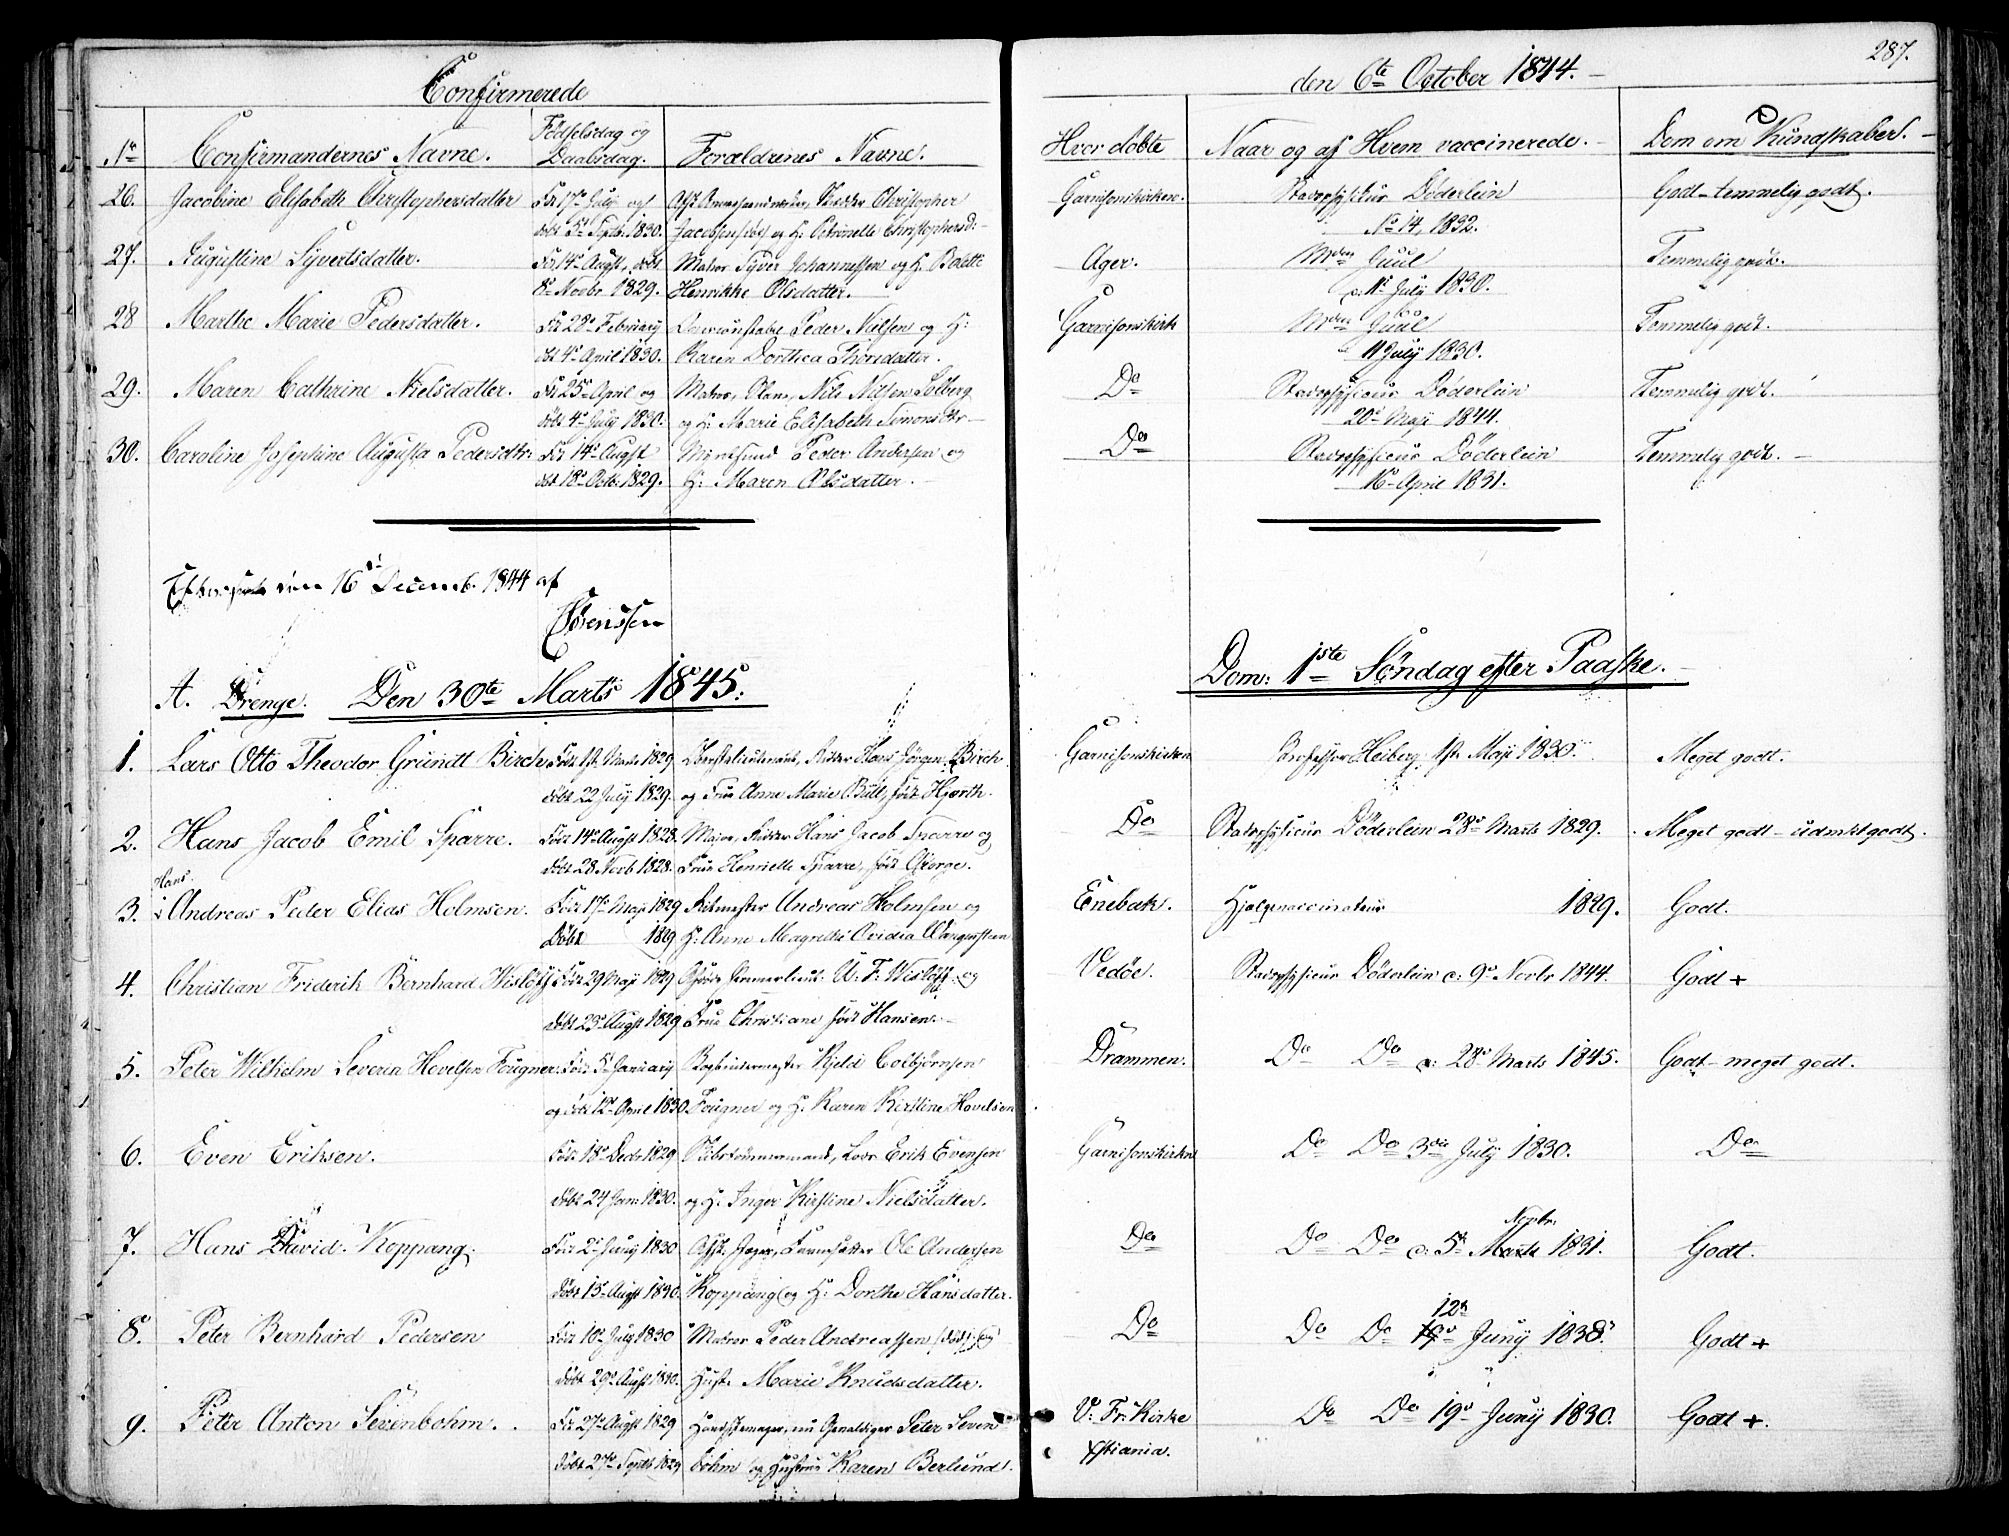 Confirmerede
den 6te October 1844.
287.
No
Confirmandernes Navne.
Fødselsdag og
Daabsdag.
Forældrenes Navne.
Hvor døbte
Naar og af Hvem vaccinerede.
Dom om Kundskaber.
26. Jacobine Elisabeth Christophersdatter
Fød 17de July og
døbt 5te Septb. 1830.
Christopher
Jacobsen og H. Petronelle Christophersd.
Garnisonskirken.
Stadsphysicus Døderlein
No 14, 1832.
Godt - temmelig godt.
27. Augustine Syvertsdatter.
Fød 14de Augst, døbt
8de Novbr 1829.
Matros Syver Johannessen og H. Bolette
Henrikke Olsdatter.
Ager.
Mdm Juul
d. 11te July 1830.
Temmelig godt.
28 Marthe Marie Pedersdatter.
Fød 28de February
døbt 4de April 1830.
Peder Nielsen og H:
Karen Dorthea Thorsdatter.
Garnisonskirk
Mdm Juul
11 July 1830.
Temmelig godt.
29. Maren Cathrine Nielsdatter.
Fød 25de April og
døbt 4de July 1830.
Matros, Nils Nilsen Solberg
og H: Marie Elisabeth Simonsdtr
Do
Stadsphysicus Døderlein
20de Maji 1844.
Temmelig godt.
30. Caroline Josephine Augusta Pedersdtr:
Fød 14de Augst
døbt 18de Octb: 1829.
Peder Andersen og
H: Maren Olsdatter.
Do
Stadsphysicus Døderlein
16de April 1831.
Temmelig godt.
Efterseet den 16de Decemb. 1844 af
Sørenssen
A. Drenge. Den 30te Marts 1845.
Dom: 1ste Søndag efter Paaske.
1. Lars Otto Theodor Grundt Birch
Født 1st Marts 1829
døbt 22 July 1829.
Oberstlieutenant, Ridder Hans Jørgen Birch
og Frue Anne Marie Bull, født Hjorth.
Garnisonskirken
Professor Heiberg 1ste Maji 1830.
Meget godt.
2. Hans Jacob Emil Sparre.
Født 14de Augst 1828.
døbt 28 Novb 1828.
Major, Ridder Hans Jacob Sparre og
Frue Henriette Sparre, født
Do
Stadsphysicus Døderlein 28de Marts 1829.
Meget godt - udmkt godt.
Hans
3. Andreas Peder Elias Holmsen.
Født 17de Maji 1829
Døbt 1829
Ritmester Andreas Holmsen og
H: Anne Magrethe Ovidia
Enebak.
Hjælpevaccinateur 1829.
Godt.
4. Christian Friderik Bernhard Wisløff
Født 29 Maji 1829
døbt 23de Augst 1829
U. F. Wisløff og
Frue Christiane født Hansen.
Vedøe.
Stadsphysicus Døderlein d: 9de Novbr 1844.
Godt +
5. Peter Wilhelm Severin Hovelsen Fougner
Født 5te January
og døbt 12te April 1830.
Regimentsquartermester Kjeld Colbjørnsen
Fougner og H. Karen Kirstine Hovelsen
Drammen.
Do Do d: 28de Marts 1845.
Godt - meget godt.
6. Even Eriksen.
Født 18de Decbr 1829
døbt 24 Jan: 1830.
Skibstømmermand, Lods Erik Evensen
og H. Inger Kirstine Nielsdatter.
Garnisonskirken
Do Do 3die July 1830.
Do
7. Hans David Koppang.
Født 2de Juny 1830
døbt 15de Augst 1830.
Afsk. Jæger, Ole Andersen
Koppang og H: Dorthe Hansdatter.
Do
Novbr.
Do Do d: 5te Marts 1831.
Godt.
8. Peter Bernhard Pedersen
Født 10de July 1830
døbt 29de Augst 1830.
Matros Peder Andreassen (død) og
Hust. Marie Knudsdatter.
Do
12te
Do Do 19de Juny 1838.
Godt +
9. Peter Anton Sevenbohm.
Fød 27de Augst 1829
døbt 27de Septbr 1829
nu Gevaldiger Peter Seven
bohm og Hustrue Karen Berlund.
V: Fr: Kirke
Xstiania.
Do Do 19de Juny 1830.
Godt +.